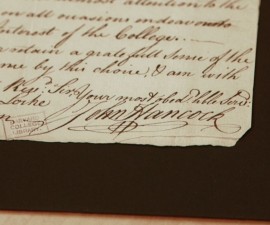 attention to the
on all occasions endeavour to
Interest of the College
retain a gratefull Sense of the
me by this choice, & am with
Sir, Your most obed. hble Serv.
Locke
John Hancock
COLLEGE